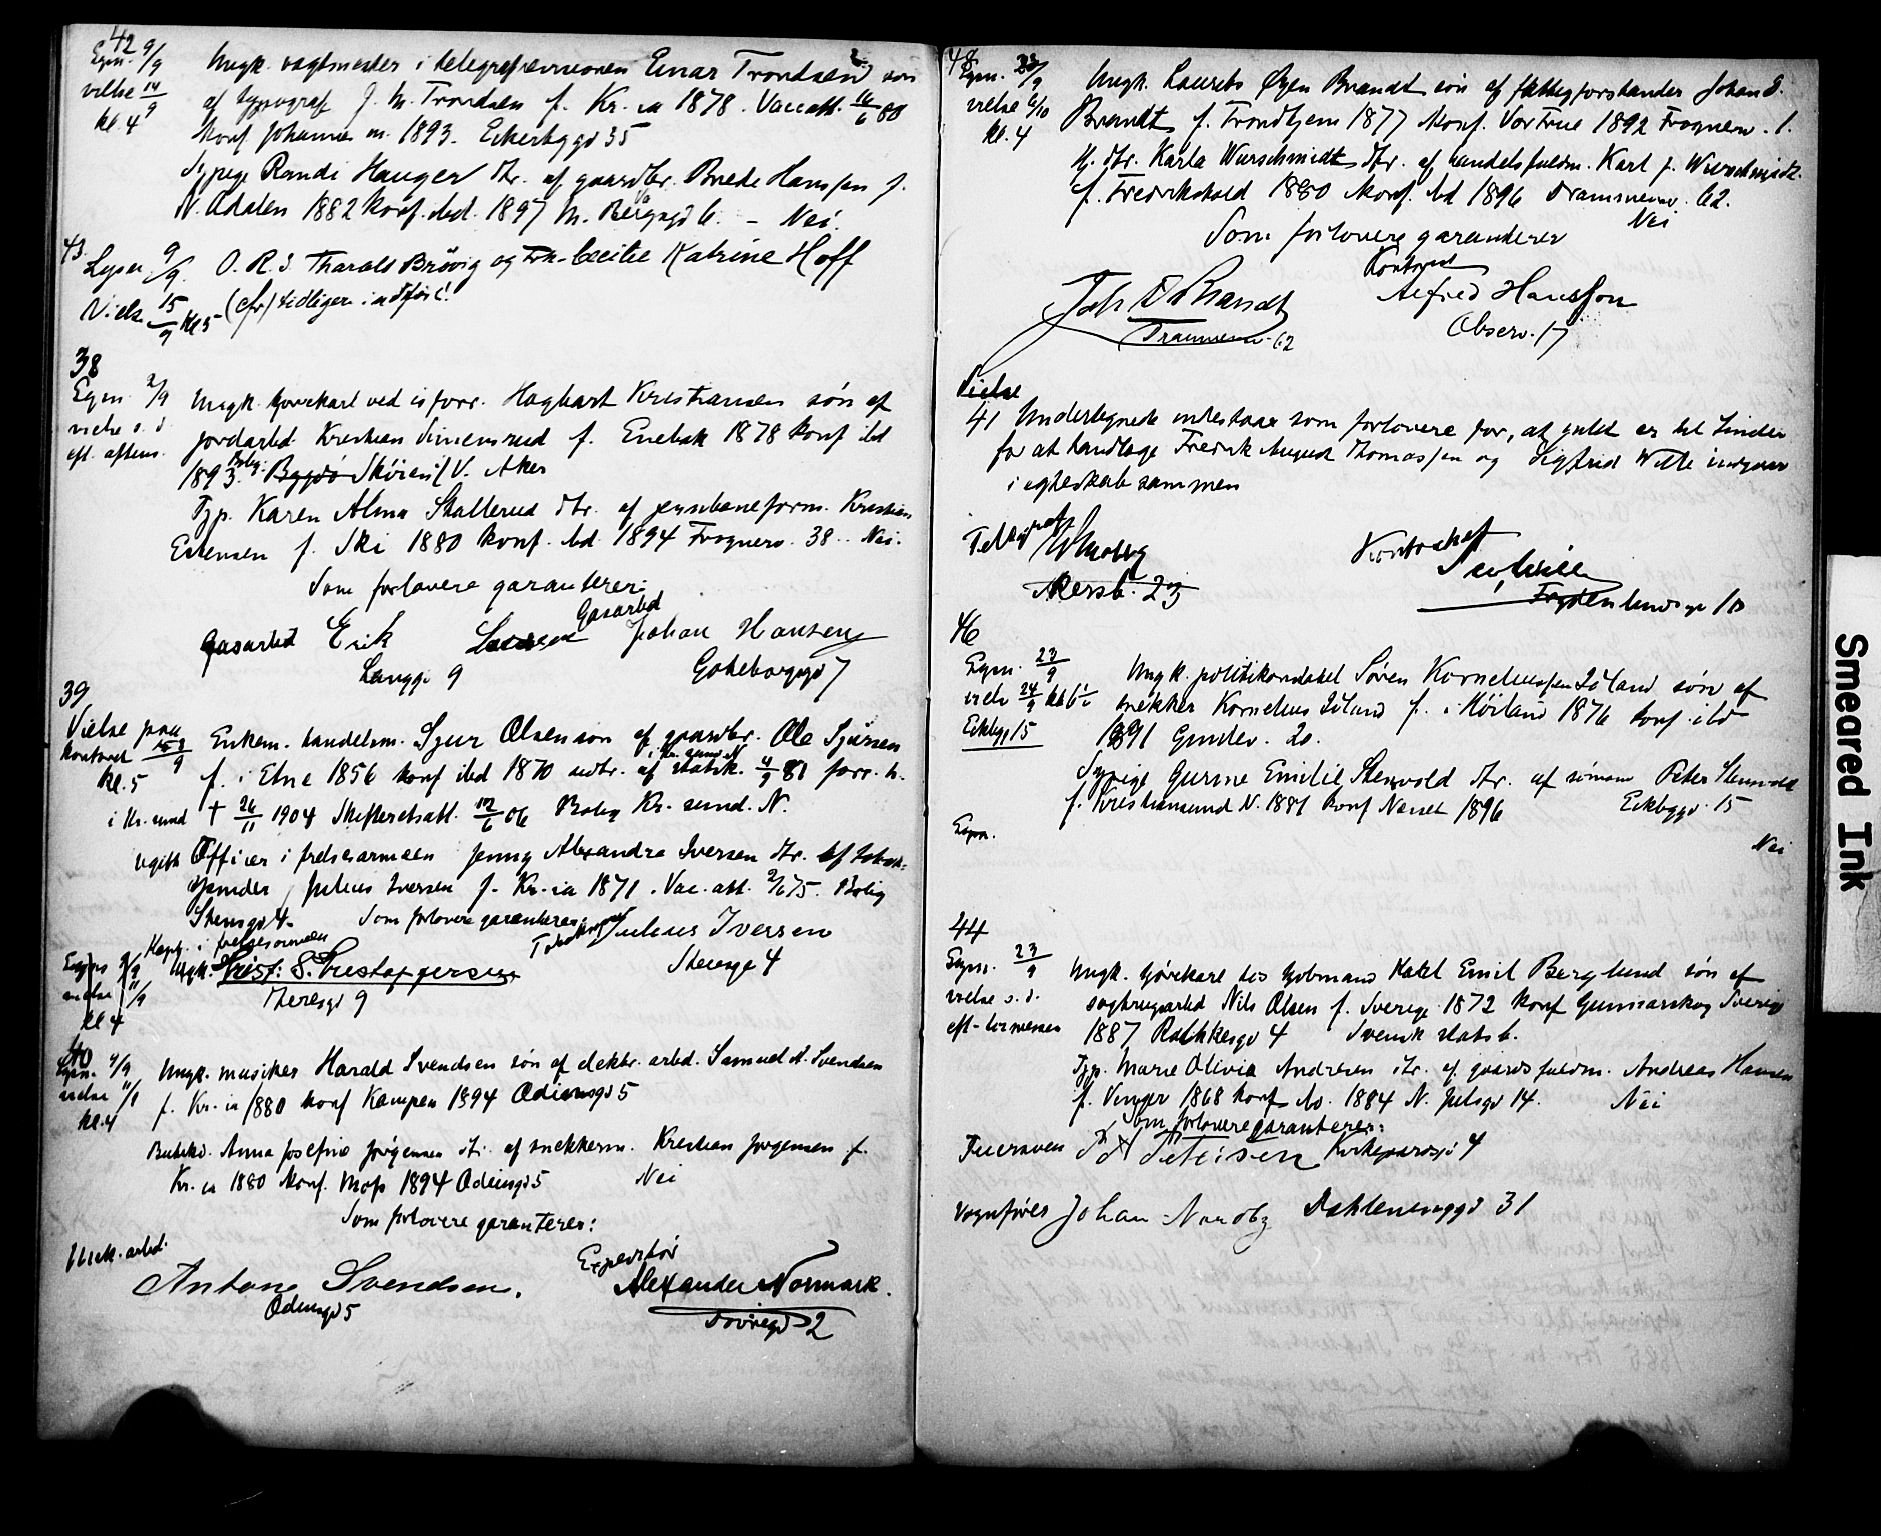 42
Egvn. 9/9
vielse 14/9
kl. 4
Ungk. vagtmester i telegrafvæsenet Einar Trondsen søn
af typograf J. M. Trondsen f. Kr.ia 1878. Vac.att. 16/6 80
konf Johannes m. 1893. Eckersbggd 35
Sypige Randi Hauger dtr. af gaardbr. Brede Hansen f.
N. Ådalen 1882 konf. ibd. 1897 M. Bergsgd 6. - Nei.
43.
Lysn. 9/9.
Viels. 15/9 kl 5
O. R. S. Tharald Brøvig og Frk. Cecilie Katrine Hoff
(cfr) tidligere indført.
38
Egvn 2/9
vielse s. d.
eft. aftens.
Ungk. kjørekarl ved isforr. Hagbart Kristiansen søn af
jordarbd. Kristian Simensrud f. Enebak 1878 konf ibd
1893. Bolig: Skøien i V. Aker
Tjp. Karen Alma Skallerud dtr. af jernbaneform. Kristian
Evensen f. Ski 1880 konf. ibd 1894 Frognerv. 38. Nei.
Som forlovere garanterer:
Gasarbd Erik Larsen
Langg. 9
Gasarbd Johan Hansen
Gøteborggd 7
39
Vielse paa
kontoret 9
kl. 5
Enkem. handelsm. Sjur Olsen søn af gaardbr. Ole Sjursen
f. i Etne 1856 konf ibd 1870 sidtr. af statsk. i Kr.sund N. 4/9 81 forr. h.
i Kr.sund † 26/11 1904 Skifteretsatt. 12/6 06 Bolig Kr.sund. N.
ugift Officer i frelsesarmeen Jenny Alexandra Iversen dtr. af tobak-
spinder Julius Iversen f. Kr.ia 1871. Vac. att. 2/6 75. Bolig
Stensgd 4.
Som forlovere garanterer:
Kapt. i frelsesarmeen
Krist: S. Kristoffersen
Theresgd 9
Julius Iversen
Stensg 4
Egvn 9/9
vielse 11/9
kl 4
Ungk.
40
Egvn. 4/9
vielse 11/1
kl. 4
Ungk. musiker Harald Svendsen søn af elektr. arbd. Samuel A. Svendsen
f. Kr.ia 1880 konf Kampen 1894 Odinsgd 5
Butikd. Anna Josefine Jørgensen dtr. af snekkerm. Kristian Jørgensen f.
Kr.ia 1880 konf. Moss 1894 Odinsgd 5 Nei
Som forlovere garanterer:
Elek. arbd.
Antone Svendsen.
Odinsgd 5
Expeditør
Alexander Normark.
2
48
Egvn. 28/9
vielse 6/10
kl. 4
Ungk. Laurits Øyen Brandt søn af fattigforstander Johan D.
Brandt f. Trondhjem 1877 konf. Vor Frue 1892 Frognerv. 1.
Hj. dtr. Karla Wurschmidt dtr. af handelsfuldm. Karl J. Wurschmidt.
f. Fredrikshald 1880 konf. ibd 1896 Drammensv. 62.
Nei
Som forlovere garanterer
Joh D Brandt
Drammensv. 62
Kontorist
Alfred Hansson
Observ. 17
Vielse
41 Undertegnede indestaar som forlovere for, at intet er til hinder
for at handlage Fredrik August Thomassen og Sigfrid Witte indgaar
i egteskab sammen
Akersb. 23
Kontorchef
Frydenlundsg 10
46
Egvn. 23/9
vielse 24/9 kl 6½
Eckbgg 15
Ungk. politikonstabel Søren Korneliussen Iiland søn af
snekker Kornelius Iiland f. i Høiland 1876 konf. ibd
1891 Gundev. 20.
Sypige Gurine Emilie Stenvold dtr. af sømand Peter Stenvold
f. Kristiansund N. 1881 konf Nesset 1896 Eckbggd 15
Nei
Egvn.
44
Egvn. 23/9
vielse s. d.
eft. tormessen
Ungk. kjørekarl hos kjøbmand Katel Emil Berglund søn af
sagbrugarbd Nils Olsen f. Sverige 1872 konf Gunnarskog Sverig
1887 Rathkesgd 4 Svensk statsb.
Tjp. Marie Olivia Andresen dtr. af gaardsfuldm. Andreas Hansen
f. Vinger 1868 konf do. 1884 N. Julsgd 14. Nei
Som forlovere garanterer:
Petersen Kirkegaardsgd 4
Vognfører Johan Nordby Dahlenenggd 31
Smeared Ink